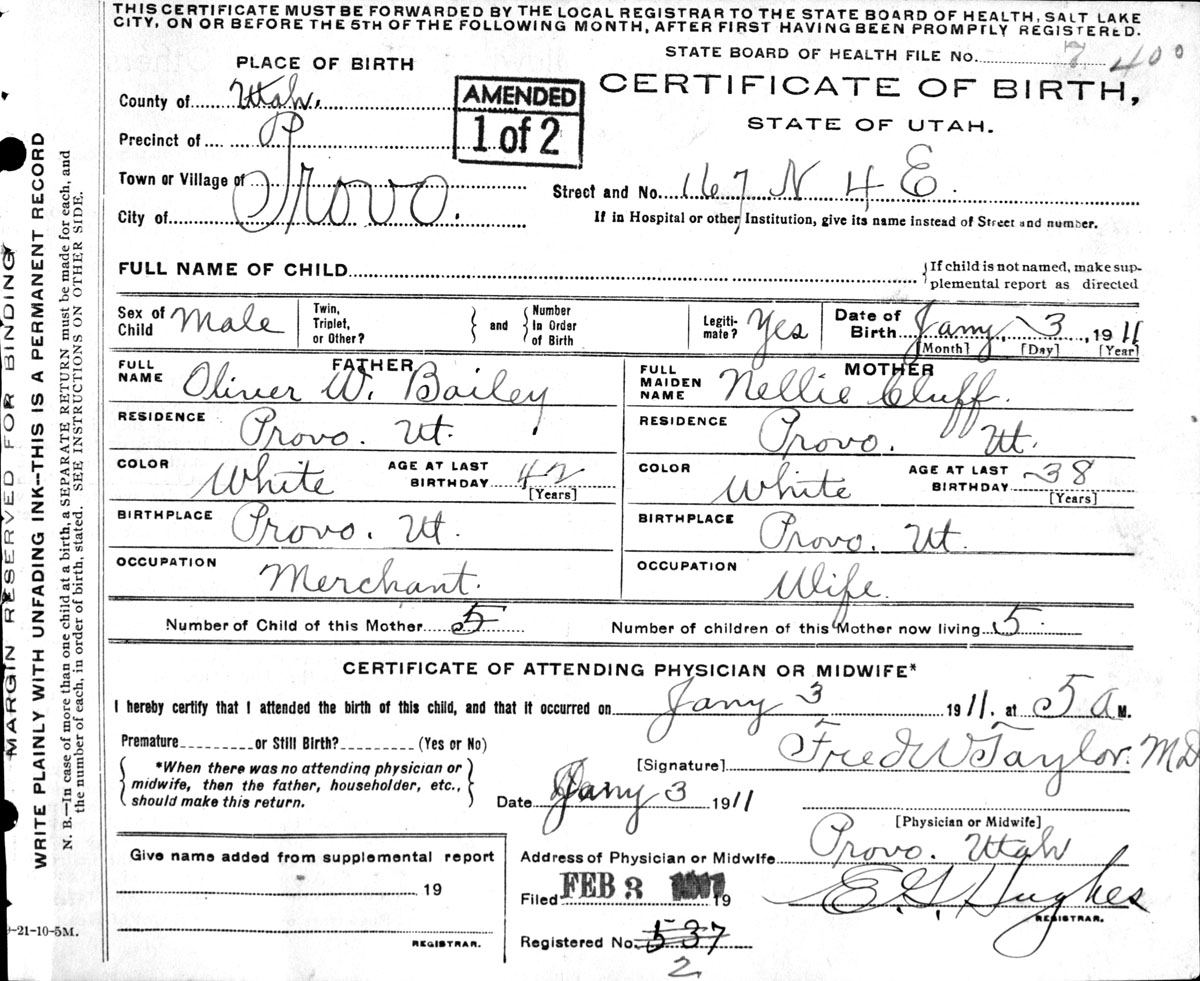 THIS CERTIFICATE MUST BE FORWARDED BY THE LOCAL REGISTRAR TO THE STATE BOARD OF HEALTH, SALT LAKE
CITY, ON OR BEFORE THE 5TH OF THE FOLLOWING MONTH, AFTER FIRST HAVING BEEN PROMPTLY REGISTERED.
STATE BOARD OF HEALTH FILE No. 7 400
PLACE OF BIRTH
CERTIFICATE OF BIRTH,
STATE OF UTAH.
AMENDED
1 of 2
County of Utah.
Precinct of P
Town or Village of
City of Provo.
Street and No. 167 N 4 E.
If in Hospital or other Institution, give its name instead of Street and number.
FULL NAME OF CHILD
If child is not named, make sup-
plemental report as directed
Sex of Child Male
Twin, Triplet, or Other?
and
Number In Order of Birth
Legiti- mate? Yes
Date of Birth Jany 3, 1911
[Month] [Day] [Year]
FATHER
FULL NAME Oliver W. Bailey
RESIDENCE Provo. Ut.
COLOR White AGE AT LAST BIRTHDAY 42
[Years]
BIRTHPLACE Provo. Ut.
OCCUPATION Merchant.
MOTHER
FULL MAIDEN NAME Nellie Cluff.
RESIDENCE Provo. Ut.
COLOR White AGE AT LAST BIRTHDAY 38
[Years]
BIRTHPLACE Provo. Ut.
OCCUPATION Wife.
Number of Child of this Mother 5 Number of children of this Mother now living 5
CERTIFICATE OF ATTENDING PHYSICIAN OR MIDWIFE*
I hereby certify that I attended the birth of this child, and that it occurred on Jany 3 1911. at 5 a M.
Premature or Still Birth? (Yes or No)
*When there was no attending physician or
midwife, then the father, householder, etc.,
should make this return.
[Signature] Fred W Taylor. MD
Date Jany 3 1911
[Physician or Midwife]
Give name added from supplemental report
19
REGISTRAR.
Address of Physician or Midwife Provo. Utah
Filed FEB 3 19
E. G. Hughes
REGISTRAR.
Registered No. 537
2
MARGIN RESERVED FOR BINDING
WRITE PLAINLY WITH UNFADING INK--THIS IS A PERMANENT RECORD
N. B.—In case of more than one child at a birth, a SEPARATE RETURN must be made for each, and
the number of each, in order of birth, stated. SEE INSTRUCTIONS ON OTHER SIDE.
-21-10-5M.